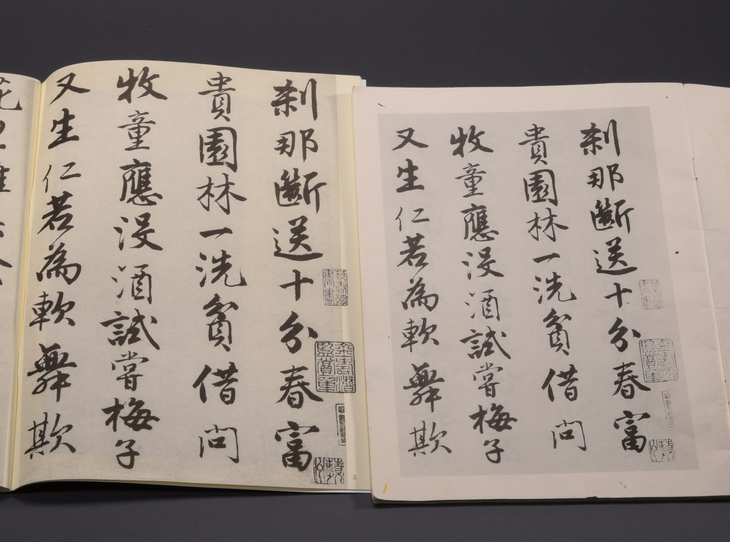 刹那斷送十分春富
貴園林一洗貧借問
牧童應沒酒試嘗梅子
又生仁若為軟舞欺
刹那斷送十分春富
貴園林一洗貧借問
牧童應沒酒試嘗梅子
又生仁若為軟舞欺